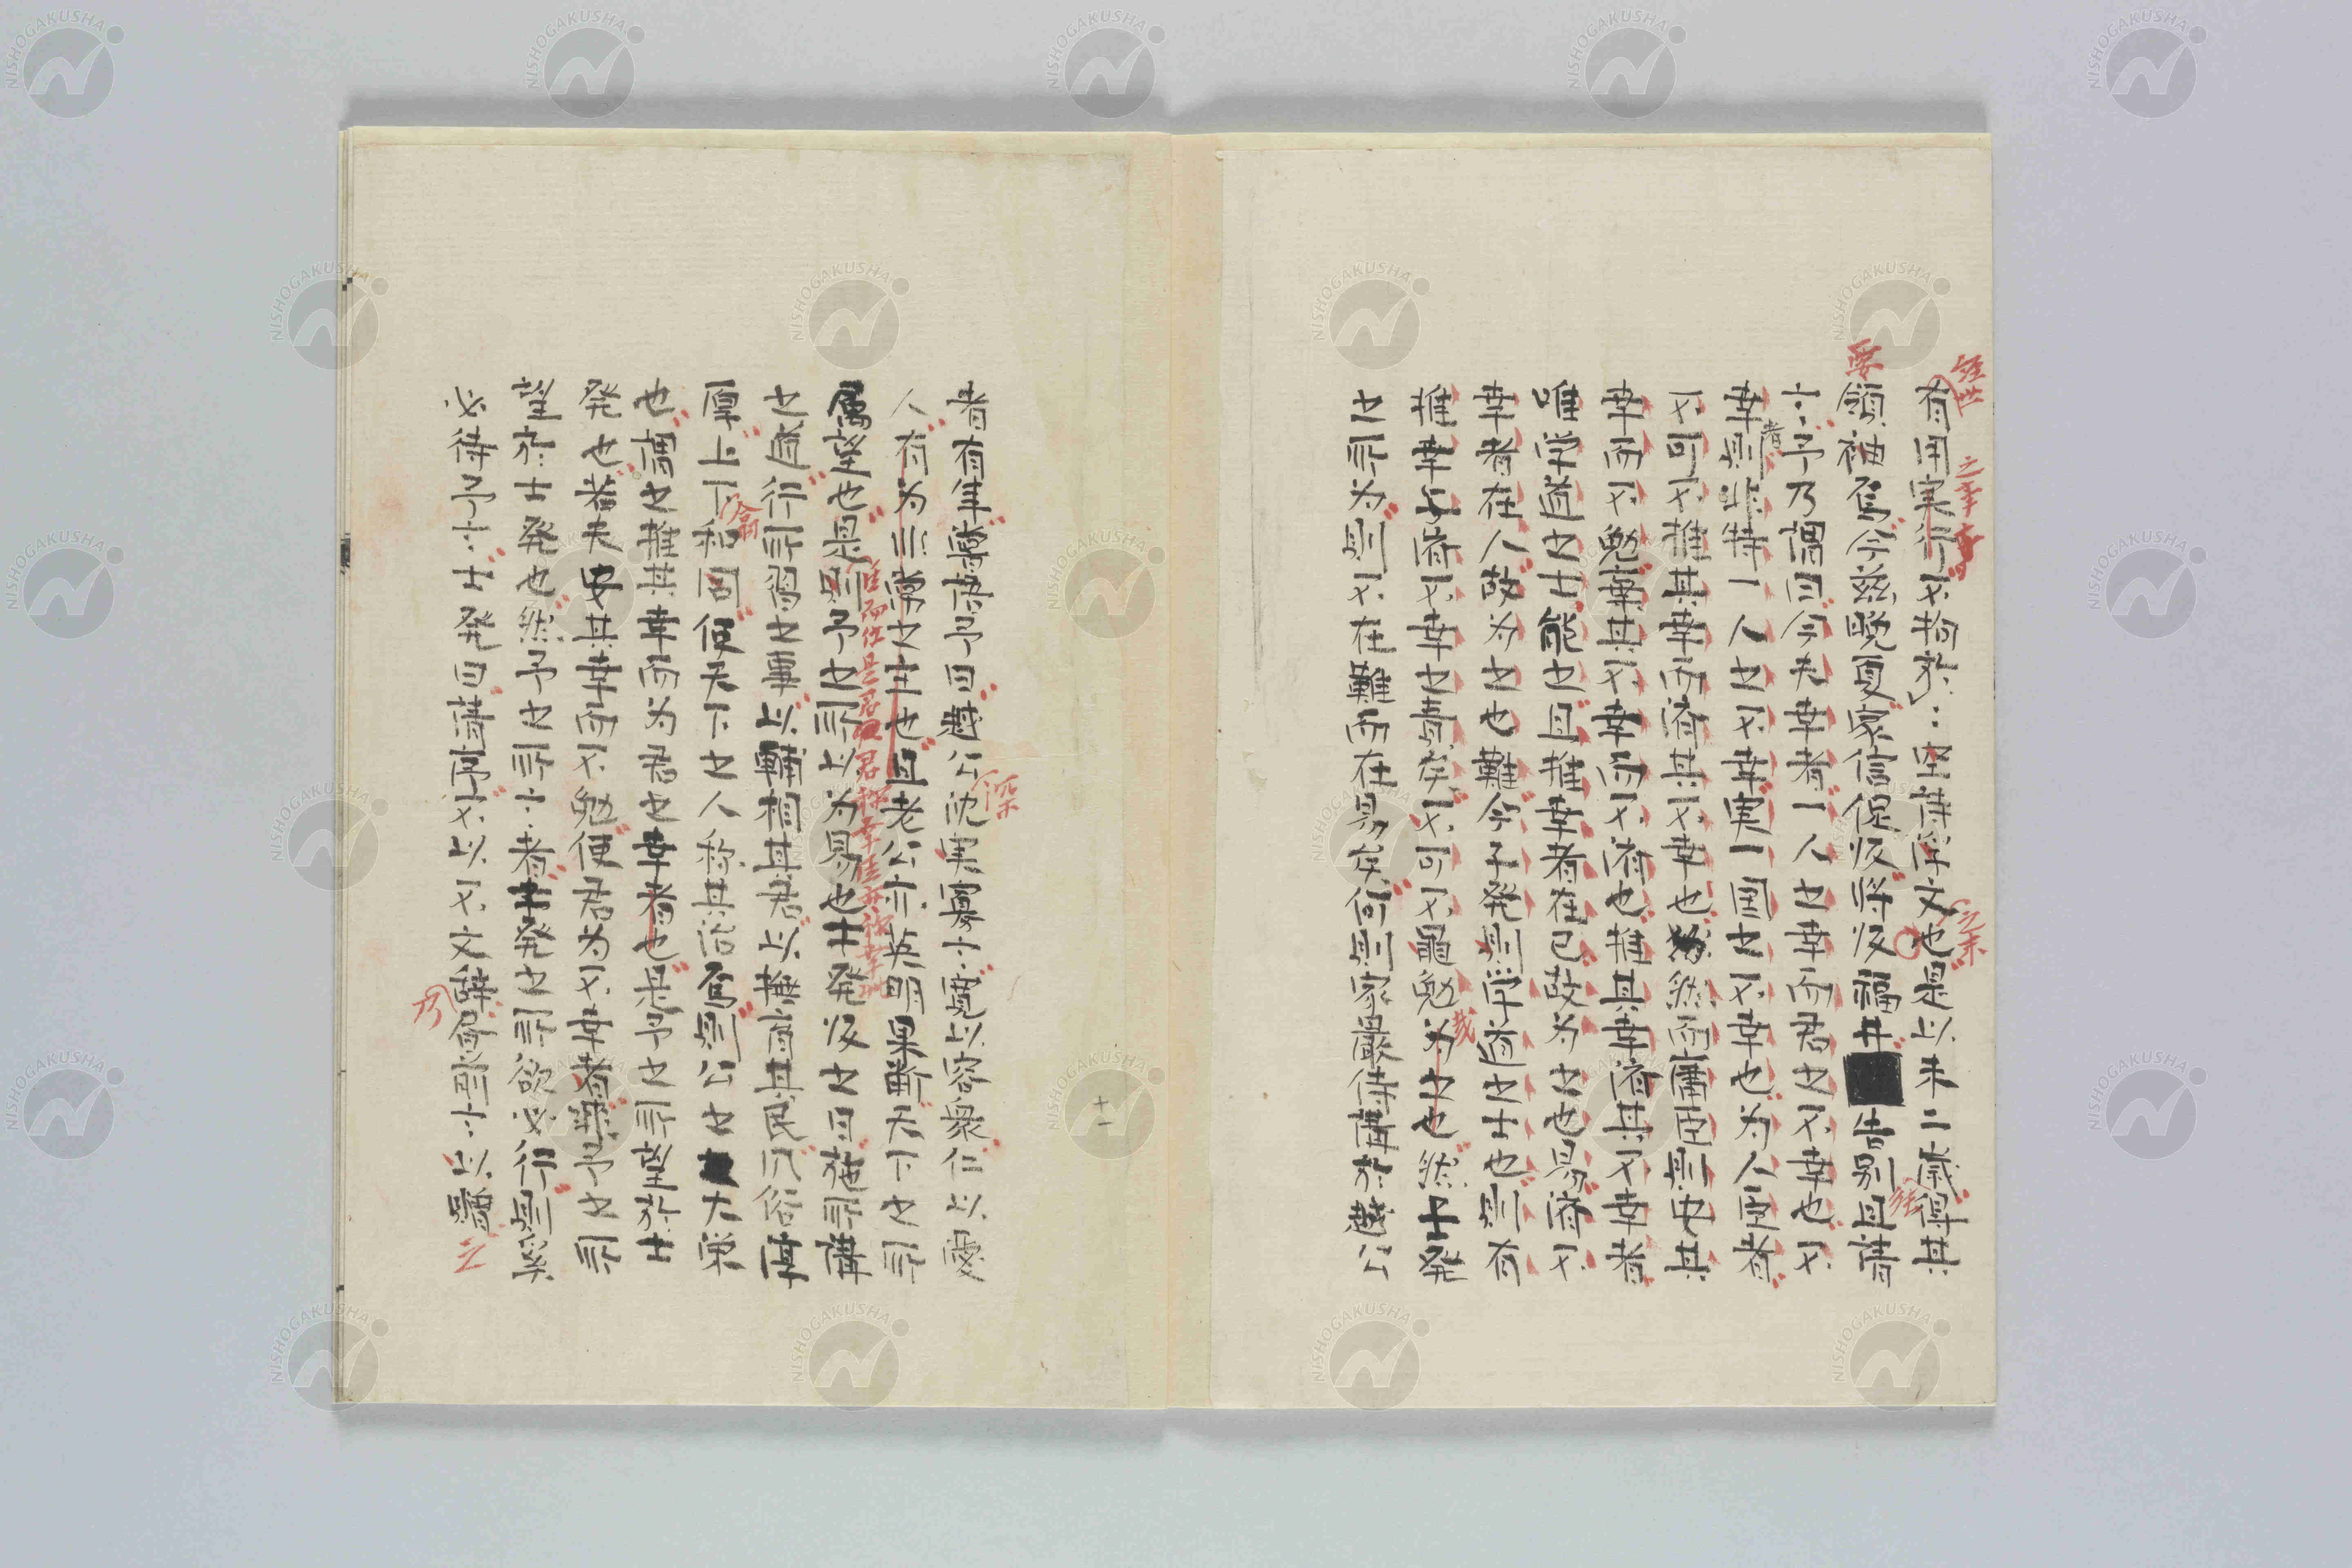 有用実行不拘於〻空詩浮文也是以未二歳得其
領袖焉今茲晩夏家信促皈将皈福井告別且請
言予乃謂曰今夫幸者一人之幸而君之不幸也不
幸者則非特一人之不幸実一国之不幸也為人臣者
不可不推其幸而済其不幸也然而庸臣則安其
幸而不勉棄其不幸而不済也推其幸済其不幸者
唯学道之士能之且推幸者在己故為之也易済不
幸者在人故為之也難今子発則学道之士也則有
推幸之済不幸之責矣不可不黽勉為之也然士発
之所為則不在難而在易矣何則家厳侍講於越公
者有年嘗語予曰越公沈実寡言寛以容衆仁以愛
人有為非常之君也且老公亦英明果断天下之所
属望也是則予之所以為易也士発皈之日猶所講
之道行所習之事以輔相其君以撫育其民風俗再
厚上下和同使天下之人称其治焉則公之大策
也謂之推其幸而為君之幸者也是予之所望於士
発也若夫安其幸而不勉使君為不幸者非予之所
望於士発也然予之所言者士発之所欲必行則奚
必待予言士発曰請序予以不文辞命酬言以贈
経世
之幸者
要
之末
経
哉
深
佳而佐是君頌君称幸佳亦称幸
翕
乃
之
十一
NISHOGAKUSHA